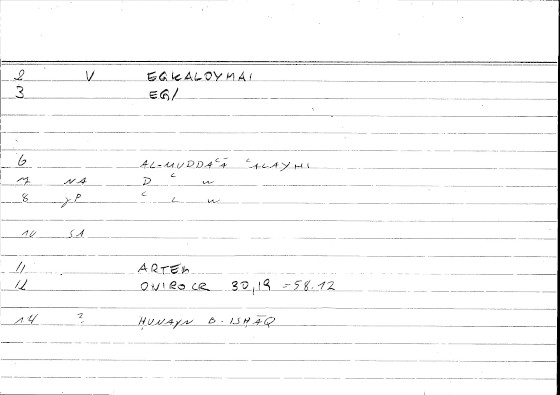 2 V EGKALOYMAI
3 EG/
6 AL-MUDDAʿĀ ʿALAYHI
7 NA D ʿ W
8 γP ʿ L W
10 SA
11 ARTEM
12 ONIROCR 30,19 =58.12
14 ? ḤUNAYN B-ISḤĀQ